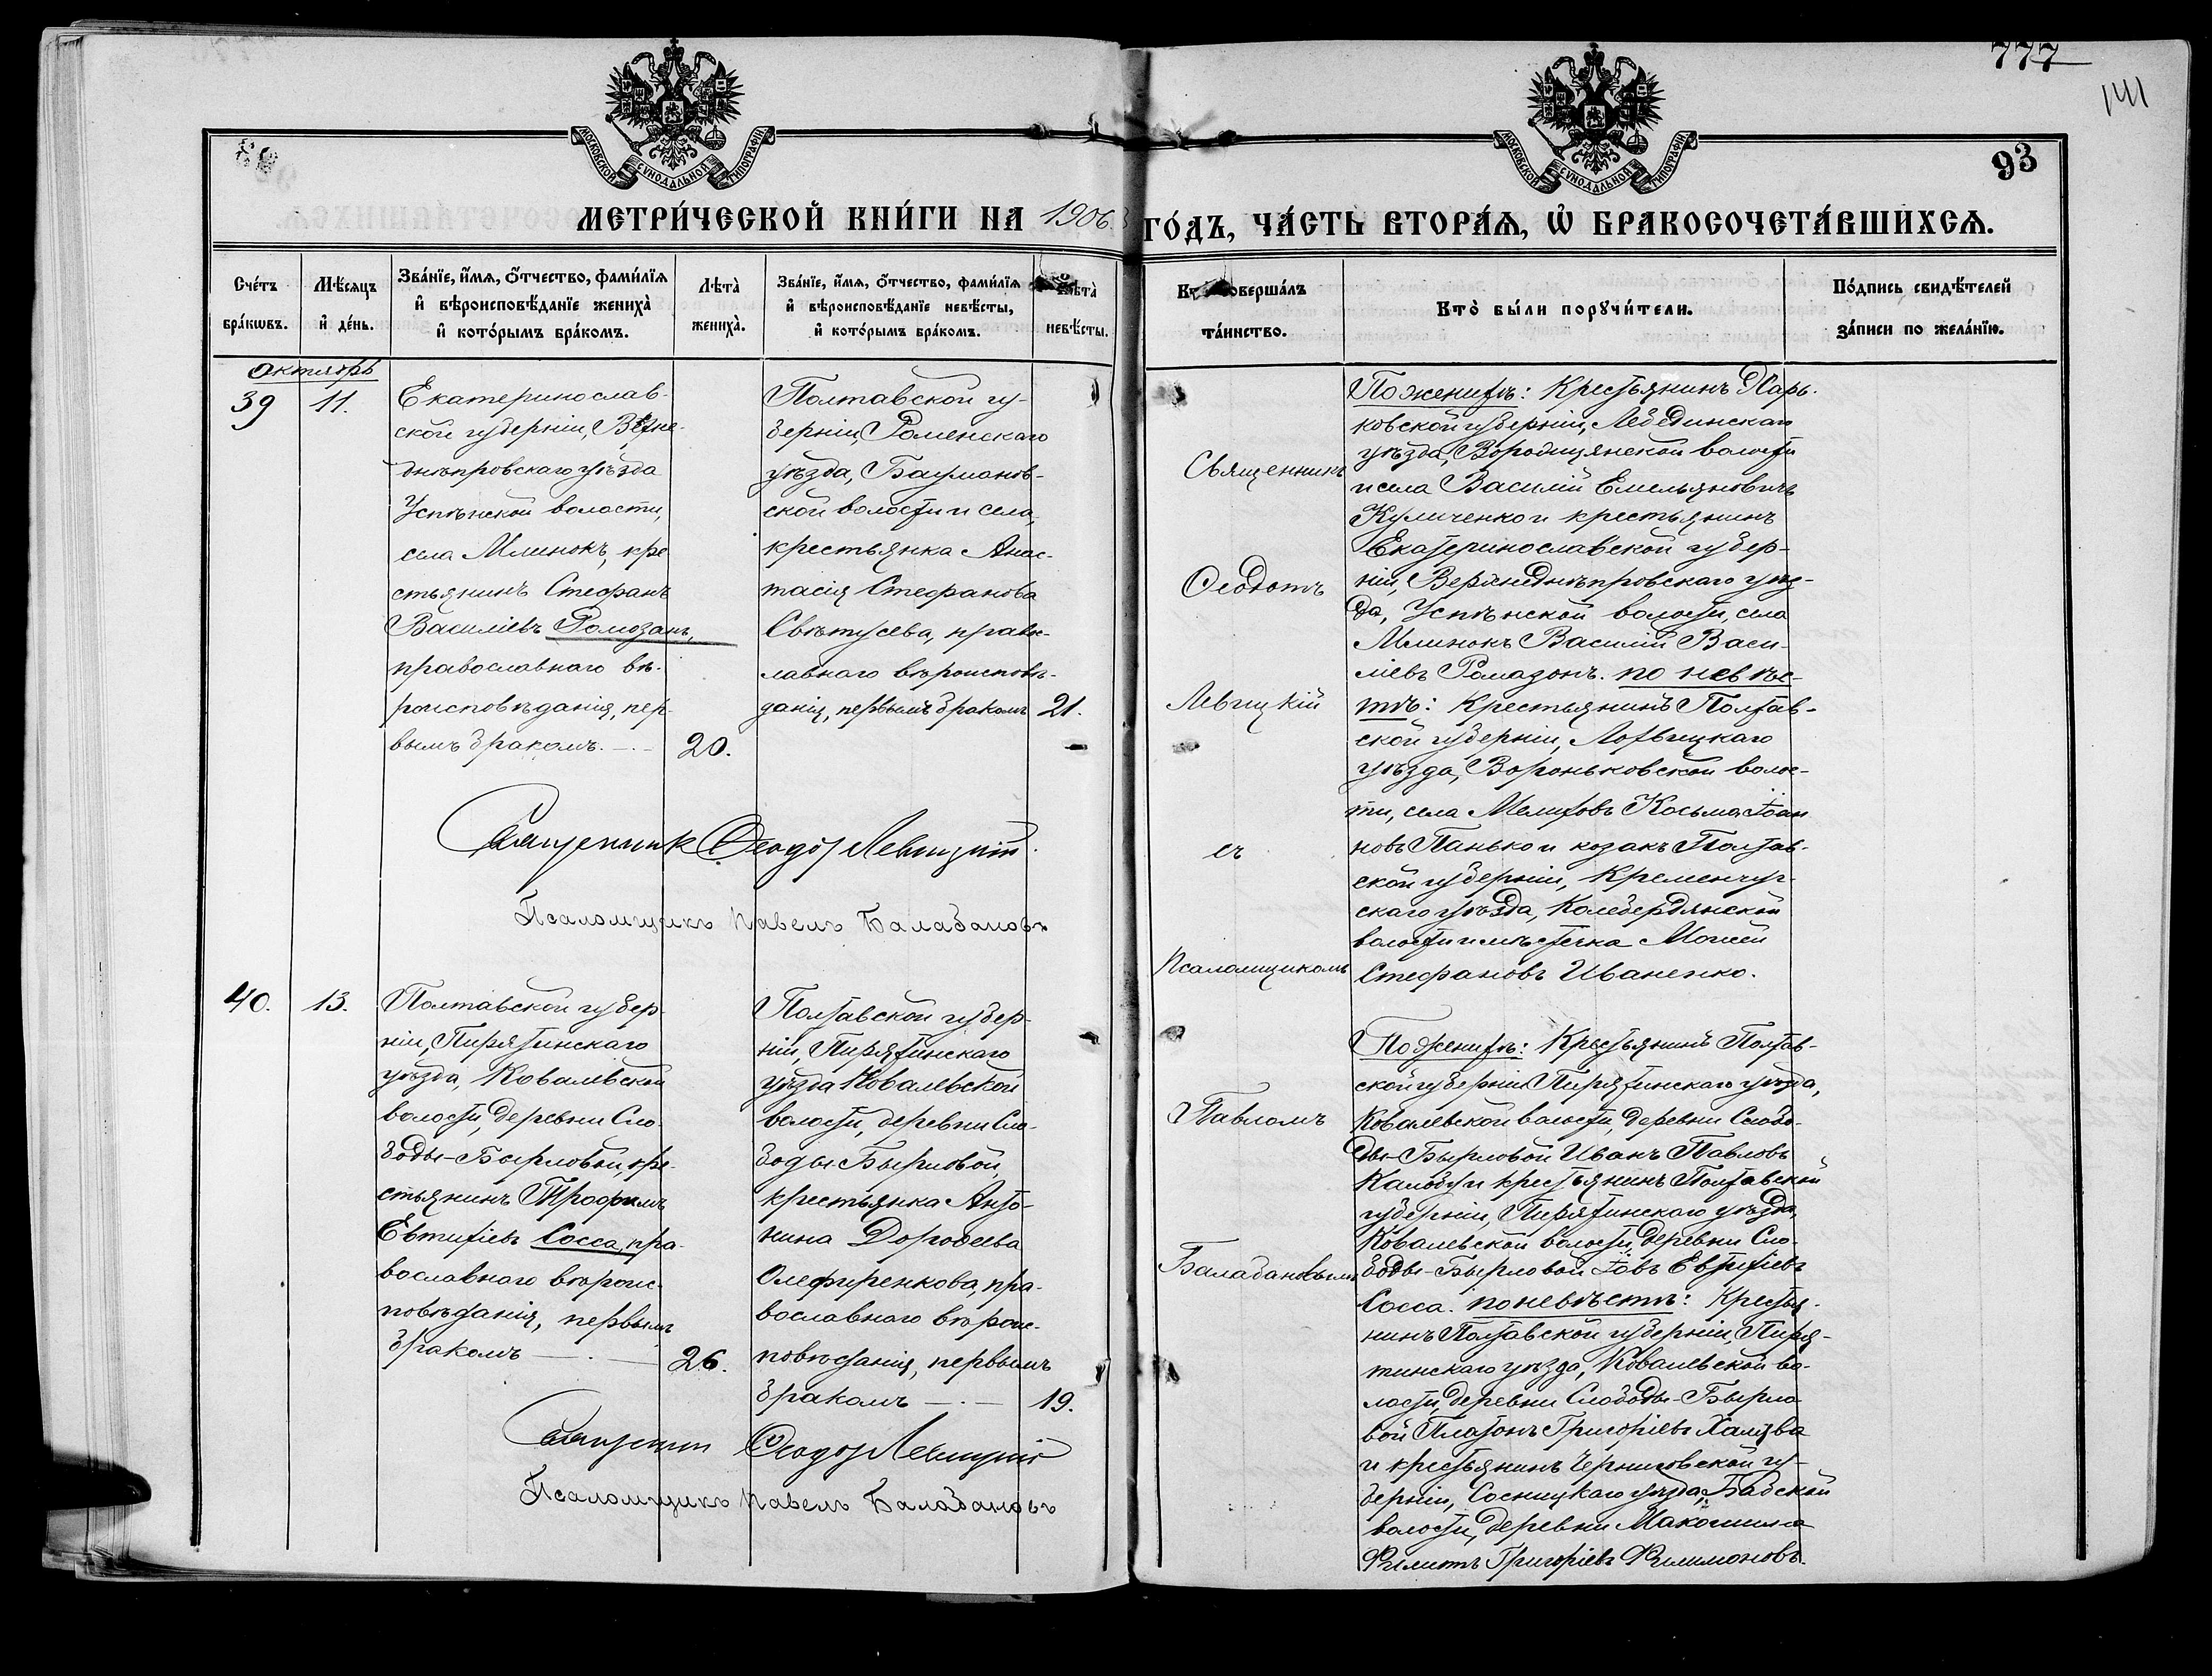 777
141
93
МОСКОВСКОЙ СѴНОДАЛЬНОЙ ТИПОГРАФІИ
МОСКОВСКОЙ СѴНОДАЛЬНОЙ ТИПОГРАФІИ
МЕТРИ́ЧЕСКОЙ КНИ́ГИ НА 1906
ГО́ДЪ, ЧА́СТЬ ВТОРА́Ѧ, Ѽ БРАКОСОЧЕТА́ВШИХСѦ.
Сче́тъ бра́кѡвъ.
Мѣ́сѧцъ и҆ де́нь.
Зва́нїе, и҆́мѧ, ѻ҆́тчество, фами́лїѧ
и҆ вѣроисповѣ́данїе жениха̀
и҆ кото́рымъ бра́комъ.
Лѣта̀ жениха̀.
Зва́нїе, и҆́мѧ, ѻ҆́тчество, фами́лїѧ
и҆ вѣроисповѣ́данїе невѣ́сты,
и҆ кото́рымъ бра́комъ.
Лѣта̀ невѣ́сты.
соверша́лъ
та́инство.
Кто̀ бы́ли порꙋчи́тели.
По́дпись свидѣ́телей
за́писи по жела́нїю.
Октябрь
39
11.
Екатеринослав-
ской губерніи, Верхне-
днѣпровскаго уѣзда
Успѣнской волости,
села Млинокъ, кре
стьянинъ Стефанъ
Василіевъ Ромозанъ,
православнаго вѣ-
роисповѣданія, пер-
вымъ бракомъ. —.—
20.
Полтавской гу-
берніи, Роменскаго
уѣзда, Баумановъ-
ской волости и села,
крестьянка Анас-
тасія Стефанова
Свѣтусева, правос-
лавнаго вѣроисповѣ-
данія, первымъ бракомъ
21.
Священникъ Ѳеодотъ Левицкій.
Псаломщикъ Павелъ Балабановъ
Священникъ
Ѳеодотъ
Левицкій
съ
Псаломщикомъ
Павломъ
Балабановымъ
По женихѣ: Крестьянинъ Харь-
ковской губерніи, Лебединскаго
уѣзда, Вородицянской волости
и села Василій Емельяновичъ
Куличенко и крестьянинъ
Екатеринославской губер-
ніи, Верхнеднѣпровскаго уѣз-
да, Успѣнской волости, села
Млинокъ Василій Васи-
ліевъ Ромазонъ. по невѣс-
тѣ: Крестьянинъ Полтав-
ской губерніи, Лохвицкаго
уѣзда, Вороньковской волос-
ти, села Мелиховъ Косьма Іоан
новъ Панько и козакъ Полтав-
ской губерніи, Кременчуг-
скаго уѣзда, Колебердянской
волости и мѣстечка Моисей
Стефановъ Иваненко.
40.
13.
Полтавской губер-
ніи, Пирятинскаго
уѣзда, Ковалевской
волости, деревни Сло-
боды-Бырловой, кре-
стьянинъ Трофимъ
Евтихіевъ Сосса, пра-
вославнаго вѣроис-
повѣданія, первымъ
бракомъ —.—
26.
Полтавской губер-
ніи, Пирятинскаго
уѣзда Ковалевской
волости, деревни Сло-
боды-Бырловой,
крестьянка Анто-
нина Дороѳеева
Олефиренкова, пра-
вославнаго вѣроис-
повѣданія, первымъ
бракомъ —.—
19.
Священник Ѳеодотъ Левицкій
Псаломщикъ Павелъ Балабановъ
По женихѣ: Крестьянинъ Полтав-
ской губерніи Пирятинскаго уѣзда,
Ковалевской волости, деревни Слобо-
ды-Бырловой Иванъ Павловъ
Калобу и крестьянинъ Полтавской
губерніи, Пирятинскаго уѣзда,
Ковалевской волости, деревни Сло-
боды-Бырловой Іовъ Евтихіевъ
Сосса. по невѣстѣ: Крестья-
нинъ Полтавской губерніи, Пиря-
тинскаго уѣзда, Ковалевской во-
лости, деревни Слободы-Бырло-
вой Платонъ Григоріевъ Халява
и крестьянинъ Черниговской гу-
берніи, Сосницкаго уѣзда, Бабской
волости, деревни Макошина
Филиппъ Григоріевъ Филимоновъ.